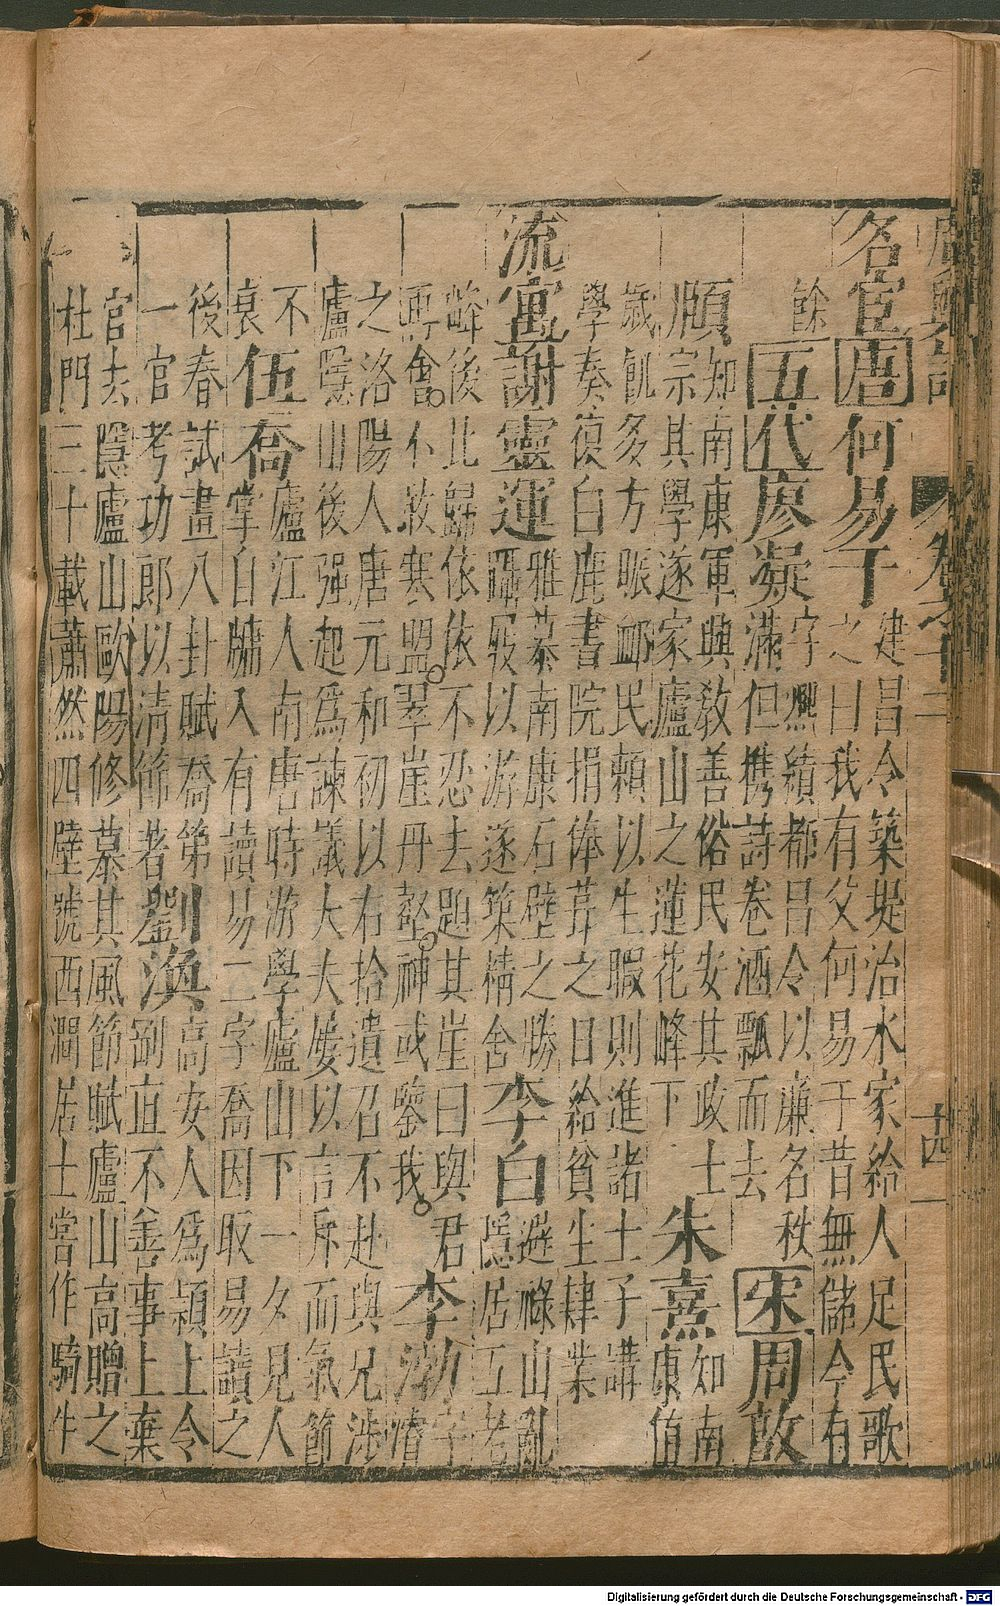 廣輿記 卷之十二 十四
名宦 唐 何易于 建昌令築堤治水家給人足民歌
之曰我有父何易于昔無儲今有
餘 五代 廖凝 字熙績都昌令以廉名秩
滿但携詩卷酒瓢而去 宋 周敦
頤 知南康軍興教善俗民安其政士
宗其學遂家廬山之蓮花峰下 朱熹 知南
康值
歲飢多方賑卹民賴以生暇則進諸士子講
學奏復白鹿書院捐俸葺之日給貧生肄業
流寓 謝靈運 雅慕南康石壁之勝
躡屐以游遂築精舍 李白 避祿山亂
隱居五老
峰後北歸依依不忍去題其崖曰與君
再會不敢寒盟翠崖丹壑神或鑒我 李渤 字
濬
之洛陽人唐元和初以右拾遺召不赴與兄涉
廬隱山後强起爲諫議大夫屢以言斥而氣節
不
衰 伍喬 廬江人南唐時游學廬山下一夕見人
掌自牖入有讀易二字喬因取易讀之
後春試畫八卦賦喬第
一官考功郎以清節著 劉渙 高安人爲潁上令
剛直不善事上棄
官去隱廬山歐陽修慕其風節賦廬山高贈之
杜門三十載蕭然四壁號西澗居士嘗作騎牛
Digitalisierung gefördert durch die Deutsche Forschungsgemeinschaft - DFG